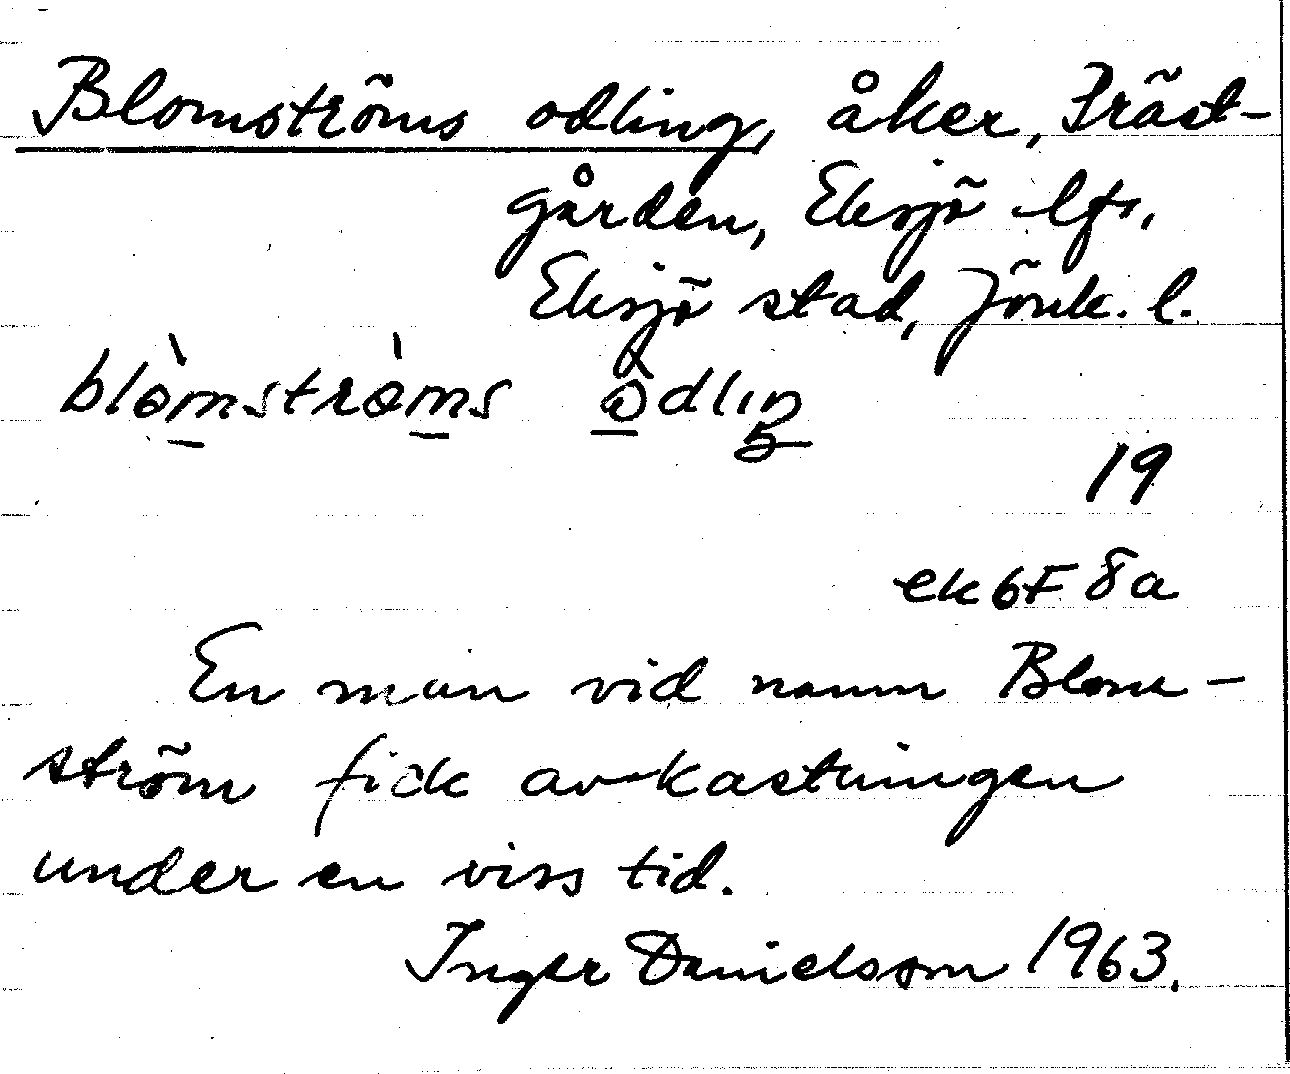 Blomströms odling, åker, Präst-
gården, Eksjö lfs,
Eksjö stad, Jönk. l.
blòmstròms òdliŋ
19
ek 6F 8a
En man vid namn Blom-
ström fick avkastningen
under en viss tid.
Inger Danielsson 1963.